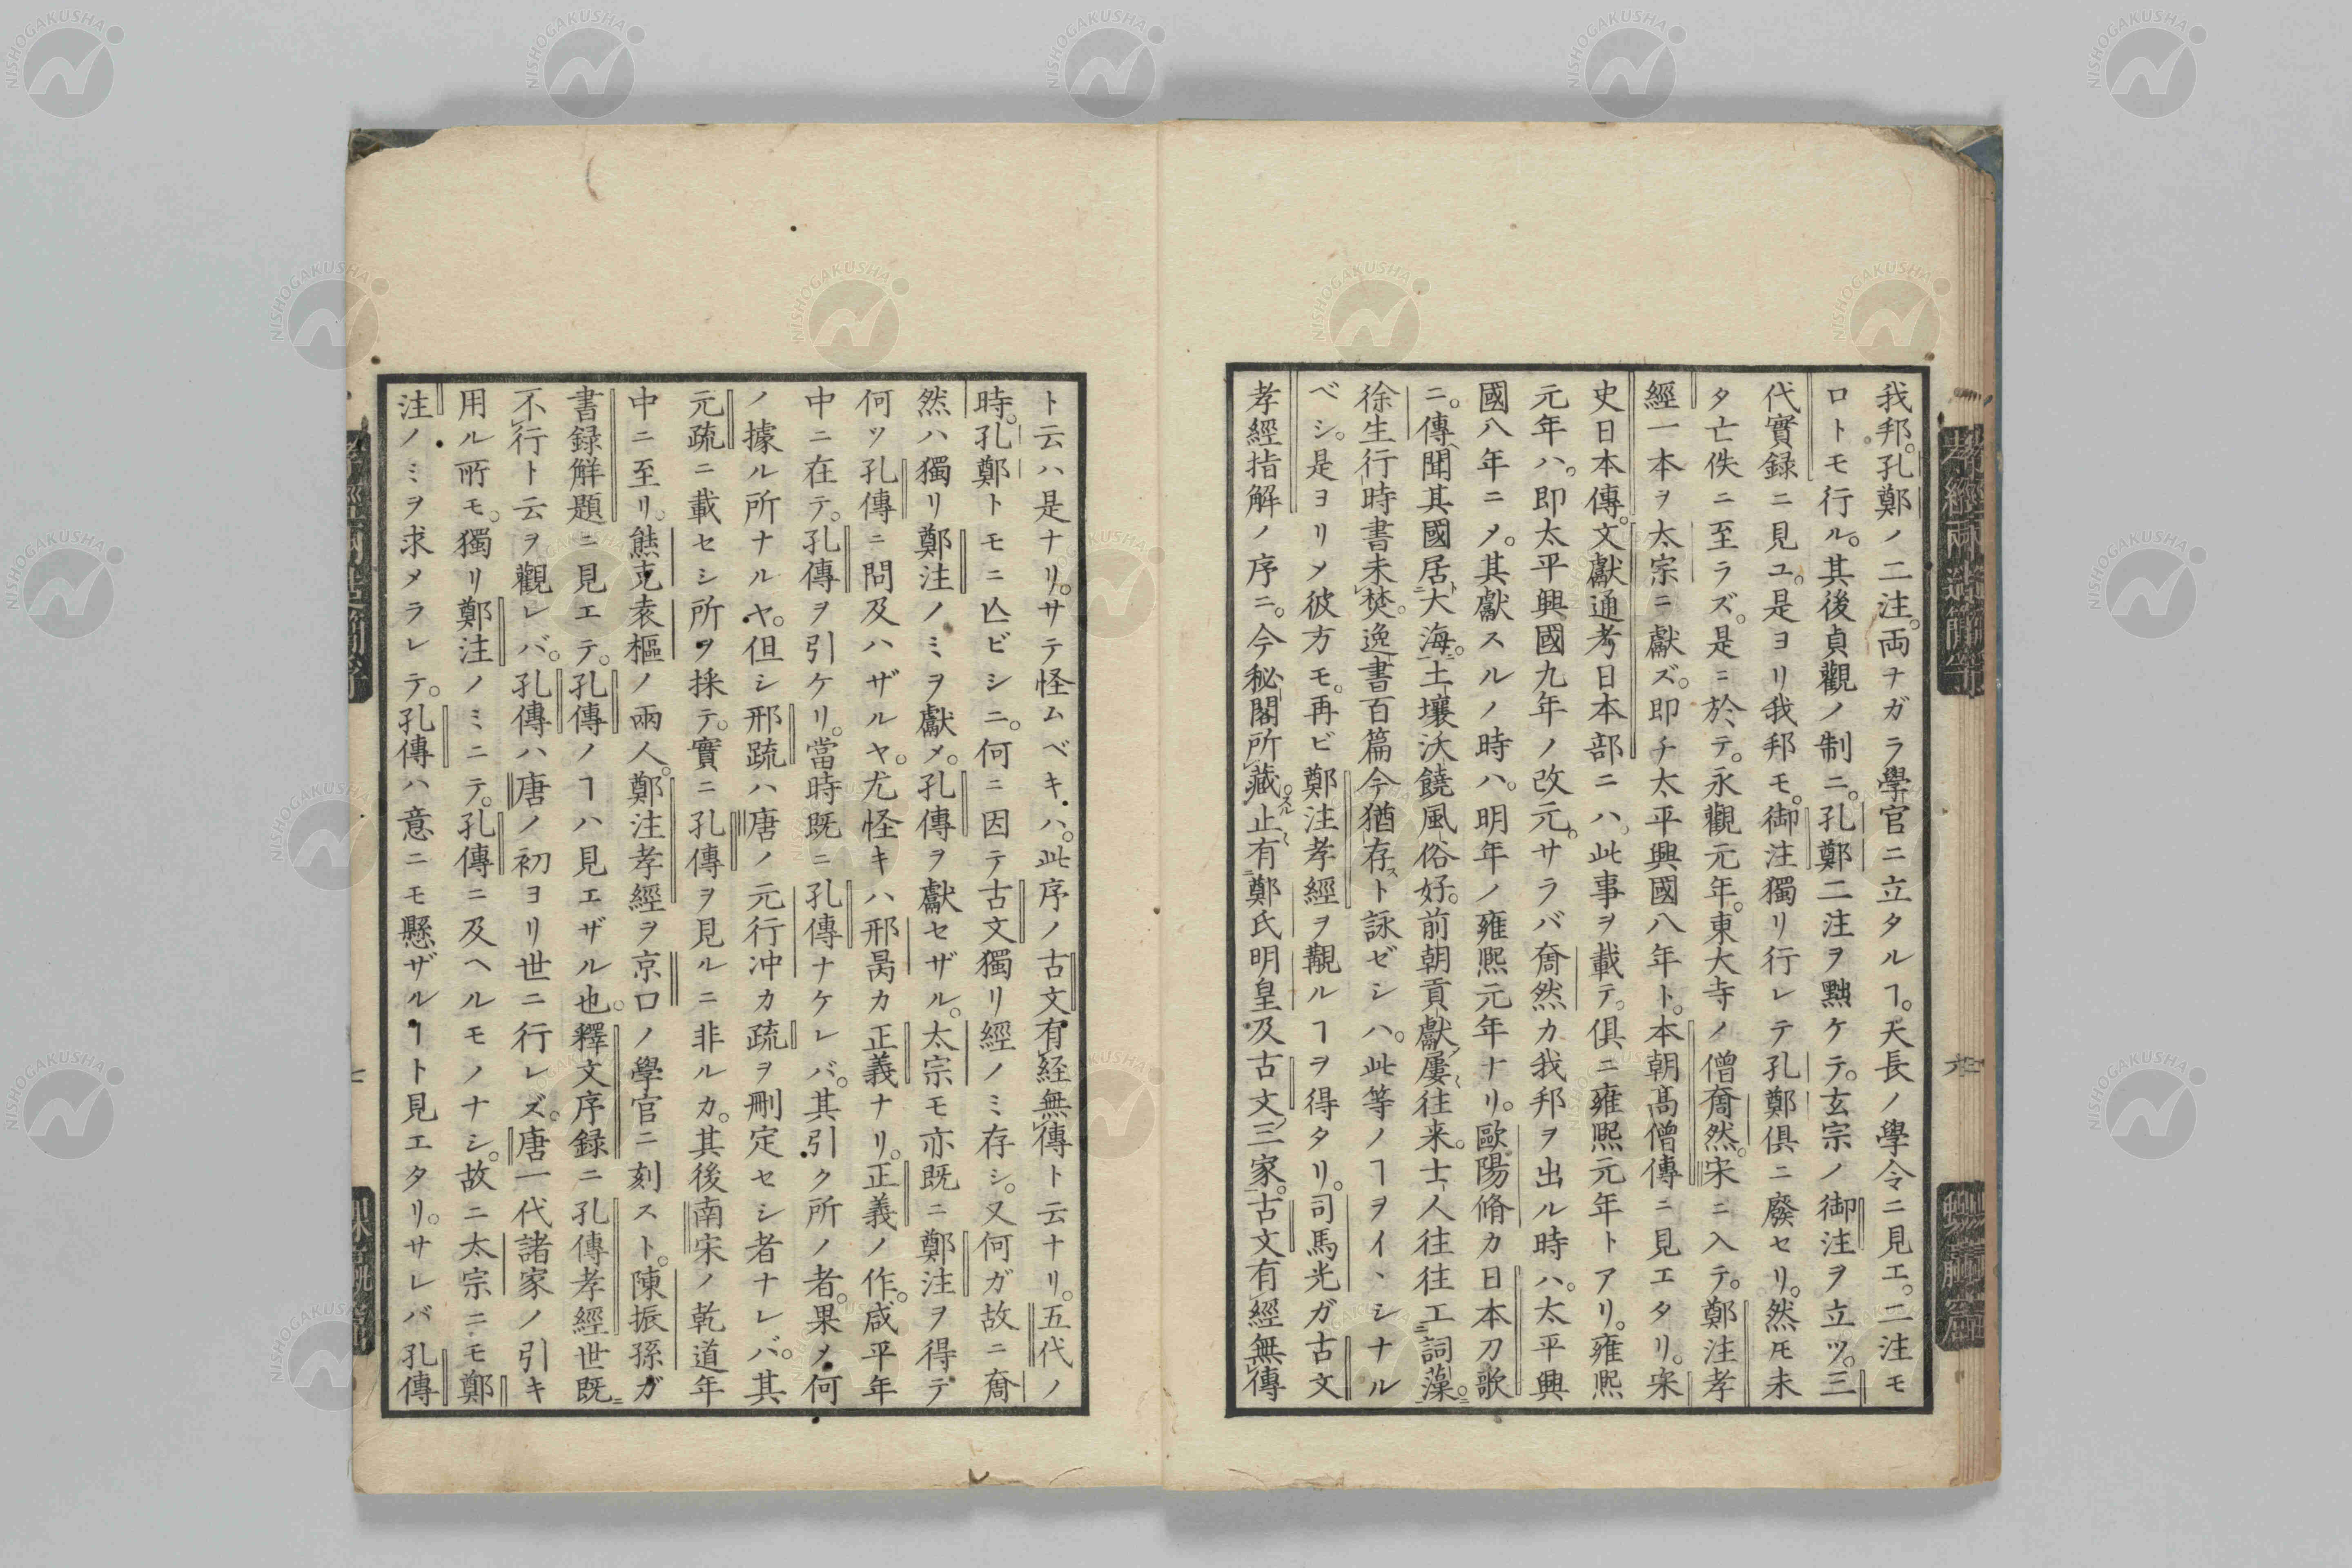 我邦。孔鄭ノ二注。両ナガラ學官ニ立タルヿ。天長ノ學令ニ見エ。二注モ
ロトモ行ル。其後貞觀ノ制ニ。孔鄭二注ヲ黜ケテ。玄宗ノ御注ヲ立ツ。三
代實録ニ見ユ。是ヨリ我邦モ。御注獨リ行レテ孔鄭俱ニ廢セリ。然𪜈未
タ亡佚ニ至ラズ。是ニ於テ。永觀元年。東大寺ノ僧奝然。宋ニ入テ。鄭注孝
經一本ヲ太宗ニ獻ズ。即チ太平興國八年ト。本朝高僧傳ニ見エタリ。宋
史日本傳。文獻通考日本部ニハ。此事ヲ載テ。俱ニ雍熙元年トアリ。雍熙
元年ハ。即太平興國九年ノ改元。サラバ奝然カ我邦ヲ出ル時ハ。太平興
國八年ニメ。其獻スルノ時ハ。明年ノ雍熙元年ナリ。歐陽脩カ日本刀歌
ニ。傳聞其國居大海。土壤沃饒風俗好。前朝貢獻屢往来。士人往往工詞藻。
徐生行時書未焚。逸書百篇今猶存スト詠ゼシハ。此等ノヿヲイヽシナル
ベシ。是ヨリメ彼方モ。再ビ鄭注孝經ヲ覩ルヿヲ得タリ。司馬光ガ古文
孝經指解ノ序ニ。今秘閣所藏。止有鄭氏明皇及古文三家。古文有經無傳
ト云ハ是ナリ。サテ怪ムベキハ。此序ノ古文有経無傳ト云ナリ。五代ノ
時。孔鄭トモニ亾ビシニ。何ニ因テ古文獨リ經ノミ存シ。又何ガ故ニ奝
然ハ獨リ鄭注ノミヲ獻メ。孔傳ヲ獻セザル。太宗モ亦既ニ鄭注ヲ得テ
何ツ孔傳ニ問及ハザルヤ。尤怪キハ邢昺カ正義ナリ。正義ノ作。咸平年
中ニ在テ。孔傳ヲ引ケリ。當時既ニ孔傳ナケレバ。其引ク所ノ者。果メ何
ノ據ル所ナルヤ。但シ邢疏ハ唐ノ元行冲カ疏ヲ刪定セシ者ナレバ。其
元疏ニ載セシ所ヲ採テ。實ニ孔傳ヲ見ルニ非ルカ。其後南宋ノ乾道年
中ニ至リ。熊克袁樞ノ兩人。鄭注孝經ヲ京口ノ學官ニ刻スト。陳振孫ガ
書録解題ニ見エテ。孔傳ノヿハ見エザル也。釋文序録ニ孔傳孝經世既
不行ト云ヲ觀レバ。孔傳ハ唐ノ初ヨリ世ニ行レズ。唐一代諸家ノ引キ
用ル所モ。獨リ鄭注ノミニテ。孔傳ニ及ヘルモノナシ。故ニ太宗ニモ鄭
注ノミヲ求メラレテ。孔傳ハ意ニモ懸ザルヿト見エタリ。サレバ孔傳